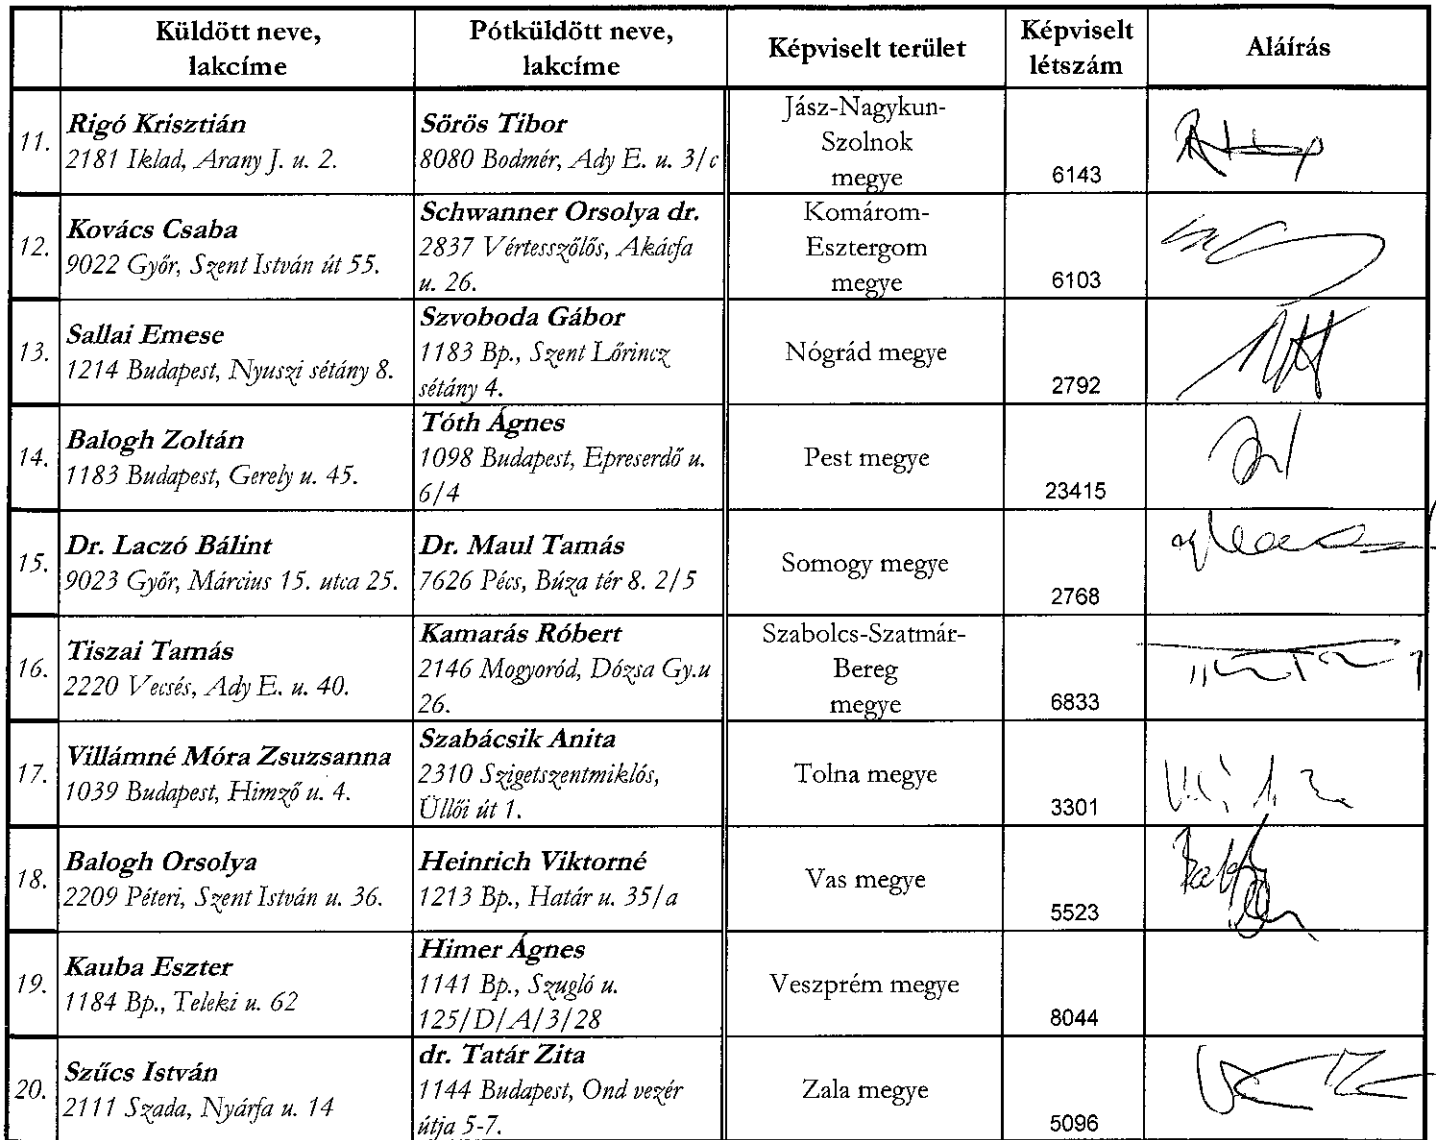 Küldött neve,
lakcíme
Pótküldött neve,
lakcíme
Képviselt terület
Képviselt
létszám
Aláírás
11.
Rigó Krisztián
2181 Iklad, Arany J. u. 2.
Sörös Tibor
8080 Bodmér, Ady E. u. 3/c
Jász-Nagykun-
Szolnok
megye
6143
12.
Kovács Csaba
9022 Győr, Szent István út 55.
Schwanner Orsolya dr.
2837 Vértesszőlős, Akácfa
u. 26.
Komárom-
Esztergom
megye
6103
13.
Sallai Emese
1214 Budapest, Nyuszi sétány 8.
Szvoboda Gábor
1183 Bp., Szent Lőrincz
sétány 4.
Nógrád megye
2792
14.
Balogh Zoltán
1183 Budapest, Gerely u. 45.
Tóth Ágnes
1098 Budapest, Epreserdő u.
6/4
Pest megye
23415
15.
Dr. Laczó Bálint
9023 Győr, Március 15. utca 25.
Dr. Maul Tamás
7626 Pécs, Búza tér 8. 2/5
Somogy megye
2768
16.
Tiszai Tamás
2220 Vecsés, Ady E. u. 40.
Kamarás Róbert
2146 Mogyoród, Dózsa Gy.u
26.
Szabolcs-Szatmár-
Bereg
megye
6833
17.
Villámné Móra Zsuzsanna
1039 Budapest, Himző u. 4.
Szabácsik Anita
2310 Szigetszentmiklós,
Üllői út 1.
Tolna megye
3301
18.
Balogh Orsolya
2209 Péteri, Szent István u. 36.
Heinrich Viktorné
1213 Bp., Határ u. 35/a
Vas megye
5523
19.
Kauba Eszter
1184 Bp., Teleki u. 62
Himer Ágnes
1141 Bp., Szugló u.
125/D/A/3/28
Veszprém megye
8044
20.
Szűcs István
2111 Szada, Nyárfa u. 14
dr. Tatár Zita
1144 Budapest, Ond vezér
útja 5-7.
Zala megye
5096